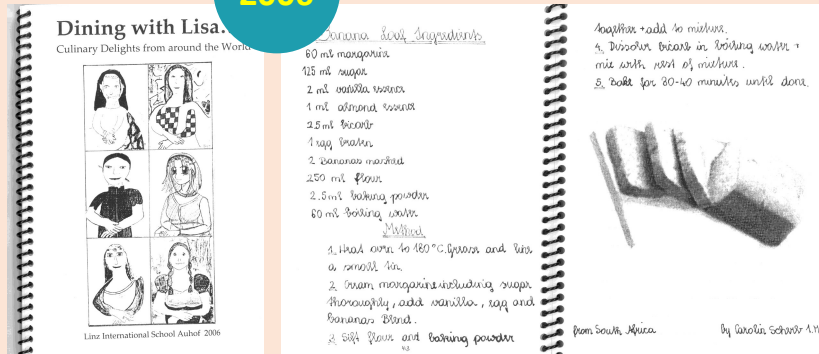 2006
Dining with Lisa...
Culinary Delights from around the World
Linz International School Auhof 2006
Banana Loaf Ingredients
60 ml margarine
125 ml sugar
2 ml vanilla essence
1 ml almond essence
2.5 ml bicarb
1 egg beaten
2 Bananas mashed
250 ml flour
2.5 ml baking powder
60 ml boiling water
Method
1. Heat oven to 180°C. Grease and line
a small tin.
2. Cream margarine including sugar
thoroughly, add vanilla, egg and
bananas. Blend.
3. Sift flour and baking powder
together + add to mixture.
4. Dissolve bicarb in boiling water +
mix with rest of mixture.
5. Bake for 30-40 minutes until done.
from South Africa
by Carolin